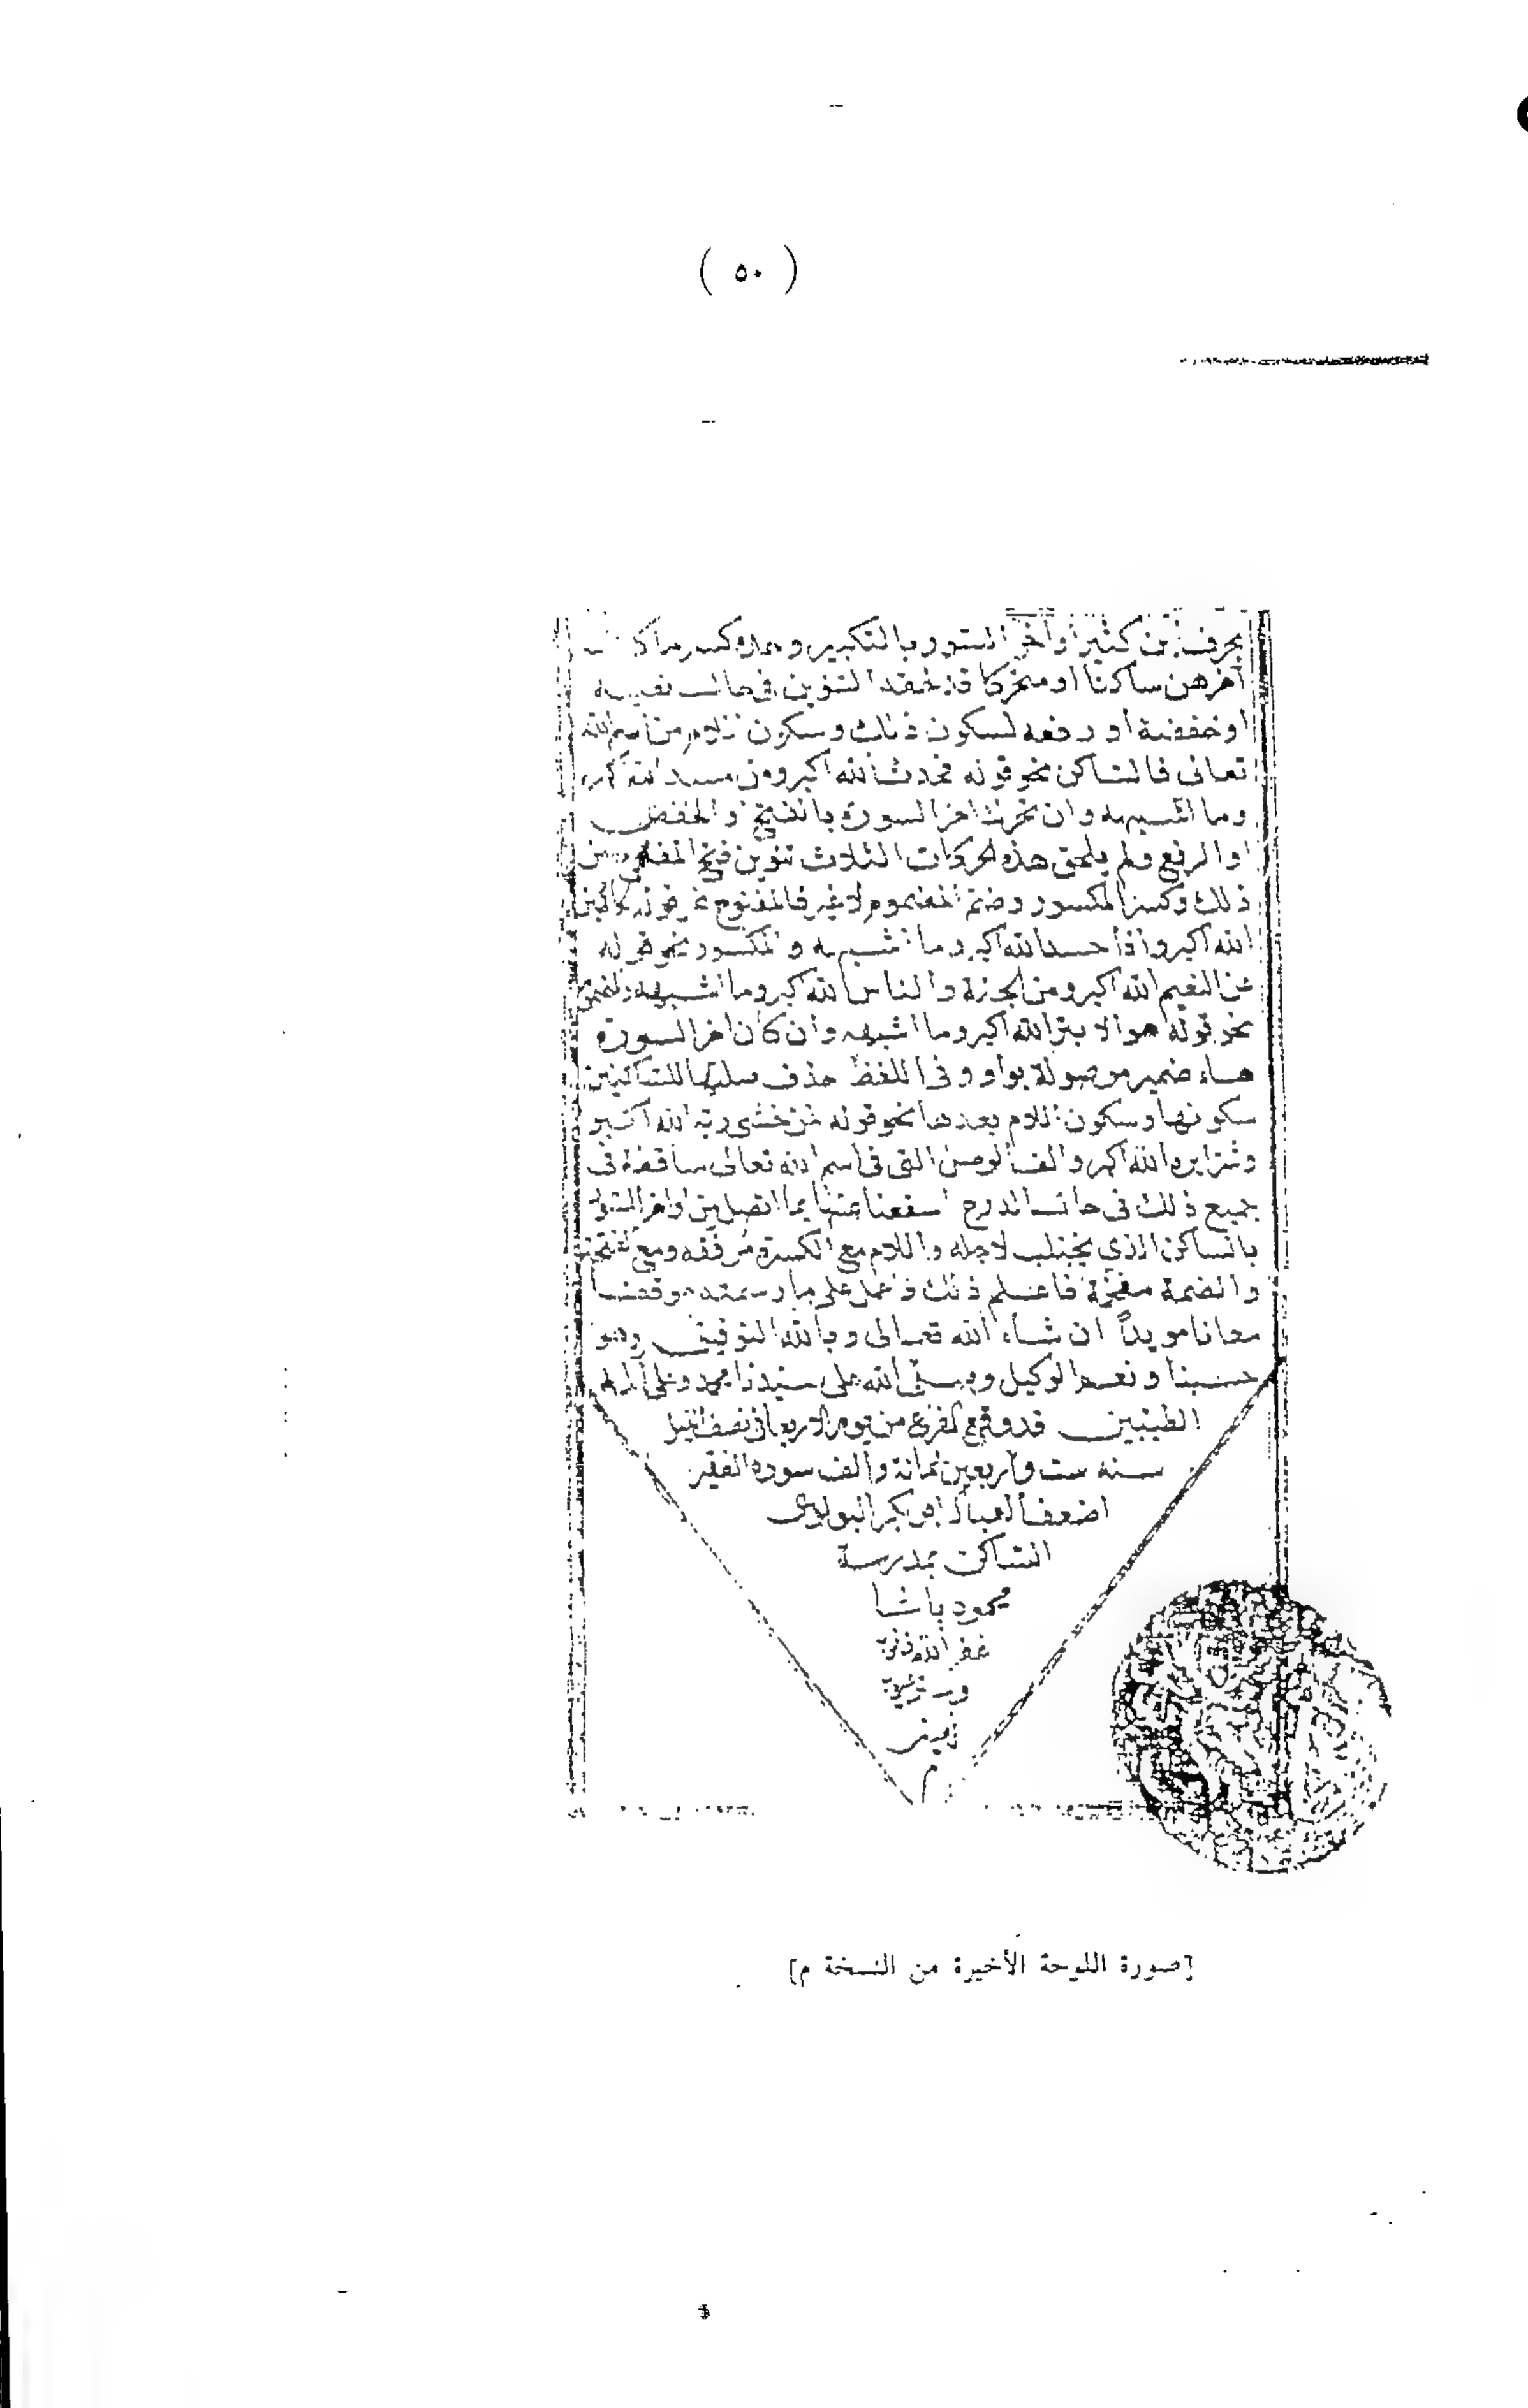 ( ٥٠ )
بحرف ابن كثير أواخر السور بالتكبير وحده كسر ما كان
آخرهن ساكنا او متحركا قد لحقه التنوين في حال نصبه
او خفضه أو رفعه لسكون ذلك وسكون اللام من اسم الله
تعالى فالساكن نحو قوله فحدث الله اكبر ومن مسد الله اكبر
وما اشبهه وان تحرك اخر السورة بالفتح او الخفض
او الرفع ولم يلحق هذه الحركات الثلاث تنوين فتح المفتوح من
ذلك وكسر المكسور وضم المضموم لا غير فالمفتوح نحو قوله الحاكمين
الله اكبر واذا حسد الله اكبر وما اشبهه والمكسور نحو قوله
عن النعيم الله اكبر ومن الجنة والناس الله اكبر وما اشبهه والمضموم
نحو قوله هو الابتر الله اكبر وما اشبهه وان كان اخر السورة
هاء ضمير موصولة بواو وفي اللفظ حذف صلتها للساكنين
سكونها وسكون اللام بعدها نحو قوله لمن خشى ربه الله اكبر
وشرا يره الله اكبر والف الوصل التي في اسم الله تعالى ساقطة في
جميع ذلك في حال الدرج استغنا عنها بما اتصل من اواخر السور
بالساكن الذي يجتلب لاجله واللام مع الكسرة مرققه ومع الفتحة
والضمة مفخمة فاعلم ذلك واعمل على ما رسمته موفقا
معانا مويدا ان شاء الله تعالى وبالله التوفيق وهو
حسبنا ونعم الوكيل وصلى الله على سيدنا محمد وعلى آله
الطيبين قد وقع الفرغ من يوم الاربعا في نصف الليل
سنه ست واربعين ثمانة والف سوده الفقير
اضعف العباد ابو بكر البولوى
الساكن بمدرسة
محمود باشا
غفر الله ذنوبه
وستر عيوبه
امين
م
[صورة اللوحة الأخيرة من النسخة م]